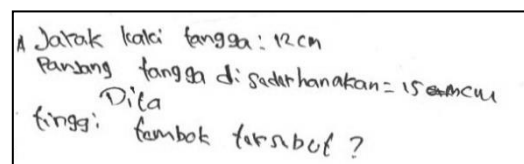 A Jarak kaki tangga: 12 cm
Panjang tangga disederhanakan = 15 cm
Dita
tinggi tembok tersebut?